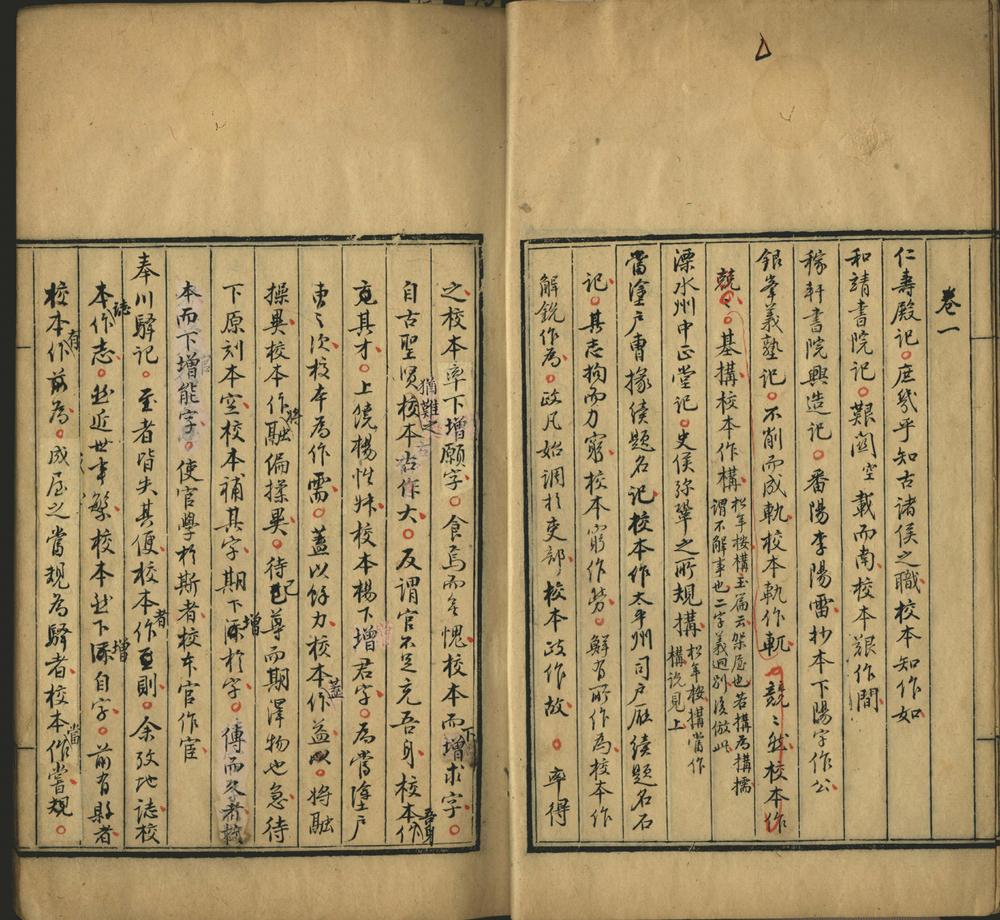 卷一
仁壽殿記庶幾乎知古諸侯之職校本知作如
和靖書院記艱闗空載而南校本艱作間
稼軒書院興造記番陽李陽雷抄本下陽字作公
銀峯義塾記不削而成軌校本軌作軏競〻然校本作
兢〻基構校本作構松年按構玉篇云架屋也若構為構㨎
謂不解事也二字義迥别後倣此
溧水州中正堂記史侯弥鞏之所規構松年按構當作
構説見上
當塗戸曹掾續題名記校本作太平州司戸㕔續題名石
記其志拘而力窮校本窮作勞解有所作為校本作
解鋭作為政凡始調於吏部校本政作故率得
之校本率下增願字食焉而無愧校本而下增求字
自古聖贤猶難之校本古作大反謂官不足充吾身校本作吾身
竟其才上饒楊性妹校本楊下增君字為當塗戸
曹之次校本為作需蓋以餘力校本蓋作益以將融
操異校本作融偏操異待已尊而期澤物也急待
下原刻本空校本補其字期下增於字傳而久者校
本而下增能字使官學於斯者校本官作宦
奉川驛記至者皆失其便校本作至者則余攷地誌校
本誌作志然近世事繁校本然下增自字前有縣者
校本有作前為成屋之當規為驛者校本當作嘗規